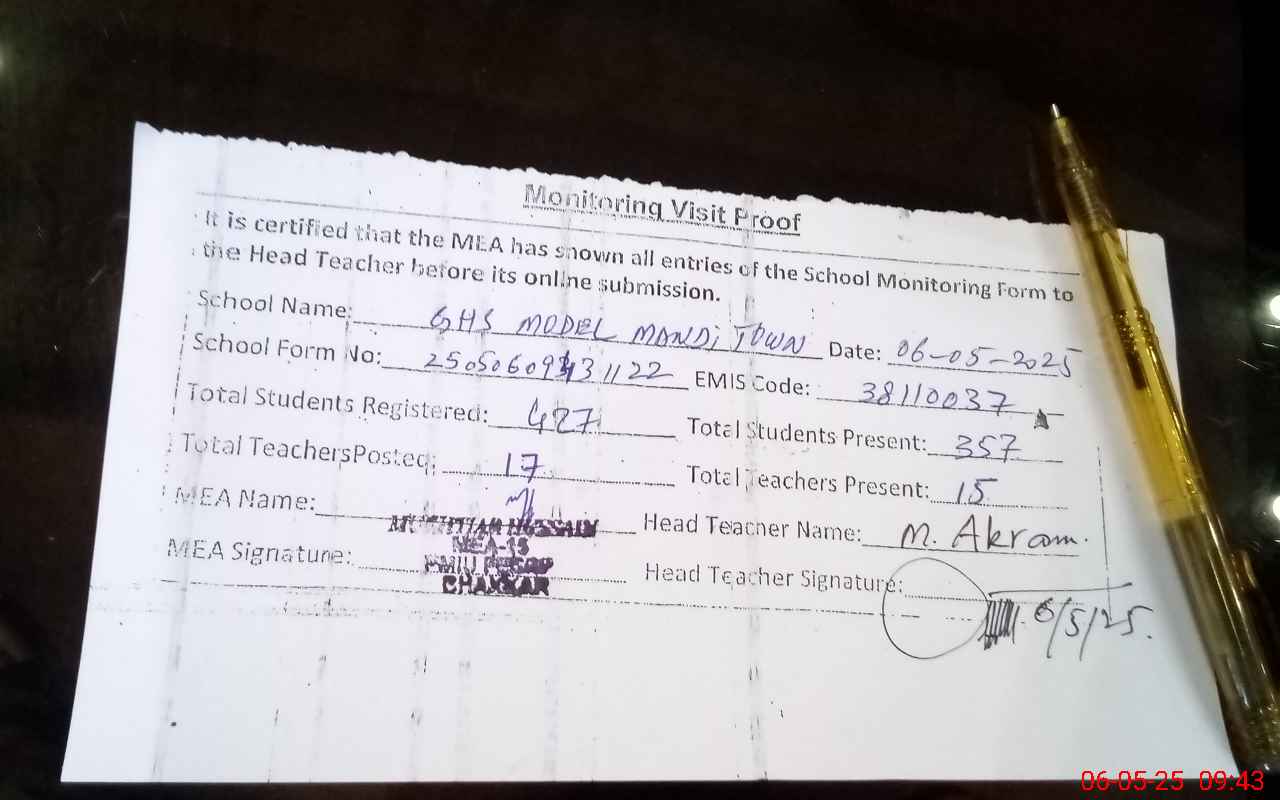 Monitoring Visit Proof
It is certified that the MEA has shown all entries of the School Monitoring Form to
the Head Teacher before its online submission.
School Name: GHS MODEL MANDI TOWN Date: 06-05-2025
School Form No: EMIS Code: 38110037
Total Students Registered: 427 Total Students Present: 357
Total Teachers Posted: 17 Total Teachers Present: 15
MEA Name: Head Teacher Name: M. Akram.
MUKHTIAR HUSSAIN
MEA-15
MEA Signature: Head Teacher Signature:
6/5/25.
06-05-25 09:43